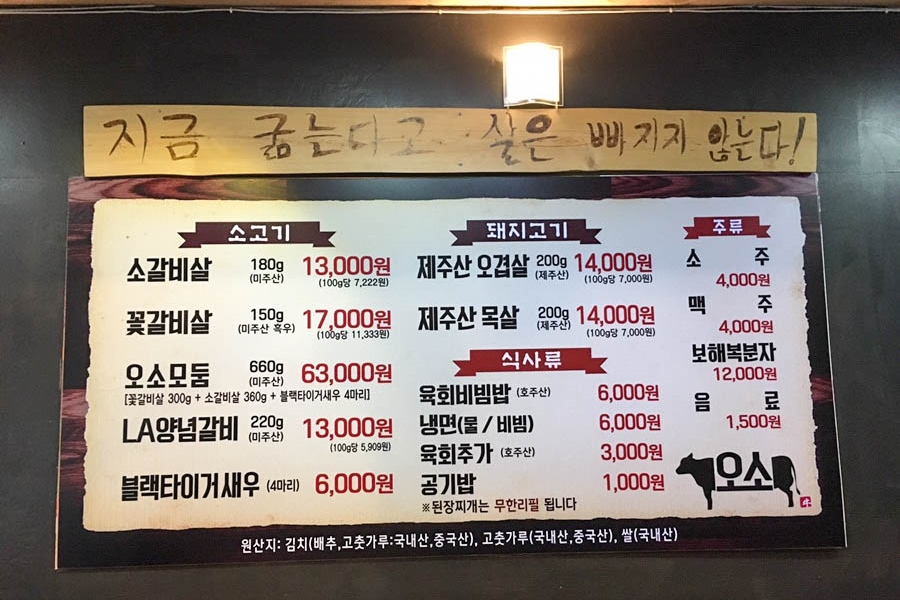 지금 굶는다고 살은 빠지지 않는다!
소고기
소갈비살 180g (미주산) 13,000원
(100g당 7,222원)
꽃갈비살 150g (미주산 흑우) 17,000원
(100g당 11,333원)
오소모둠 660g (미주산) 63,000원
[꽃갈비살 300g + 소갈비살 360g + 블랙타이거새우 4마리]
LA양념갈비 220g (미주산) 13,000원
(100g당 5,909원)
블랙타이거새우 (4마리) 6,000원
돼지고기
제주산 오겹살 200g (제주산) 14,000원
(100g당 7,000원)
제주산 목살 200g (제주산) 14,000원
(100g당 7,000원)
식사류
육회비빔밥 (호주산) 6,000원
냉면(물 / 비빔) 6,000원
육회추가 (호주산) 3,000원
공기밥 1,000원
※된장찌개는 무한리필 됩니다
주류
소 주
4,000원
맥 주
4,000원
보해복분자
12,000원
음 료
1,500원
오소
원산지: 김치(배추,고춧가루:국내산,중국산), 고춧가루(국내산,중국산), 쌀(국내산)